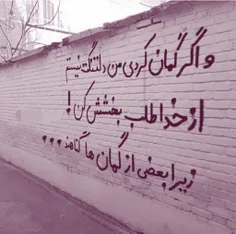 و اگر گمان کردی من دلتنگت نیستم
از خدا طلب بخشش کن !
زیرا بعضی از گمان ها گناهند ...